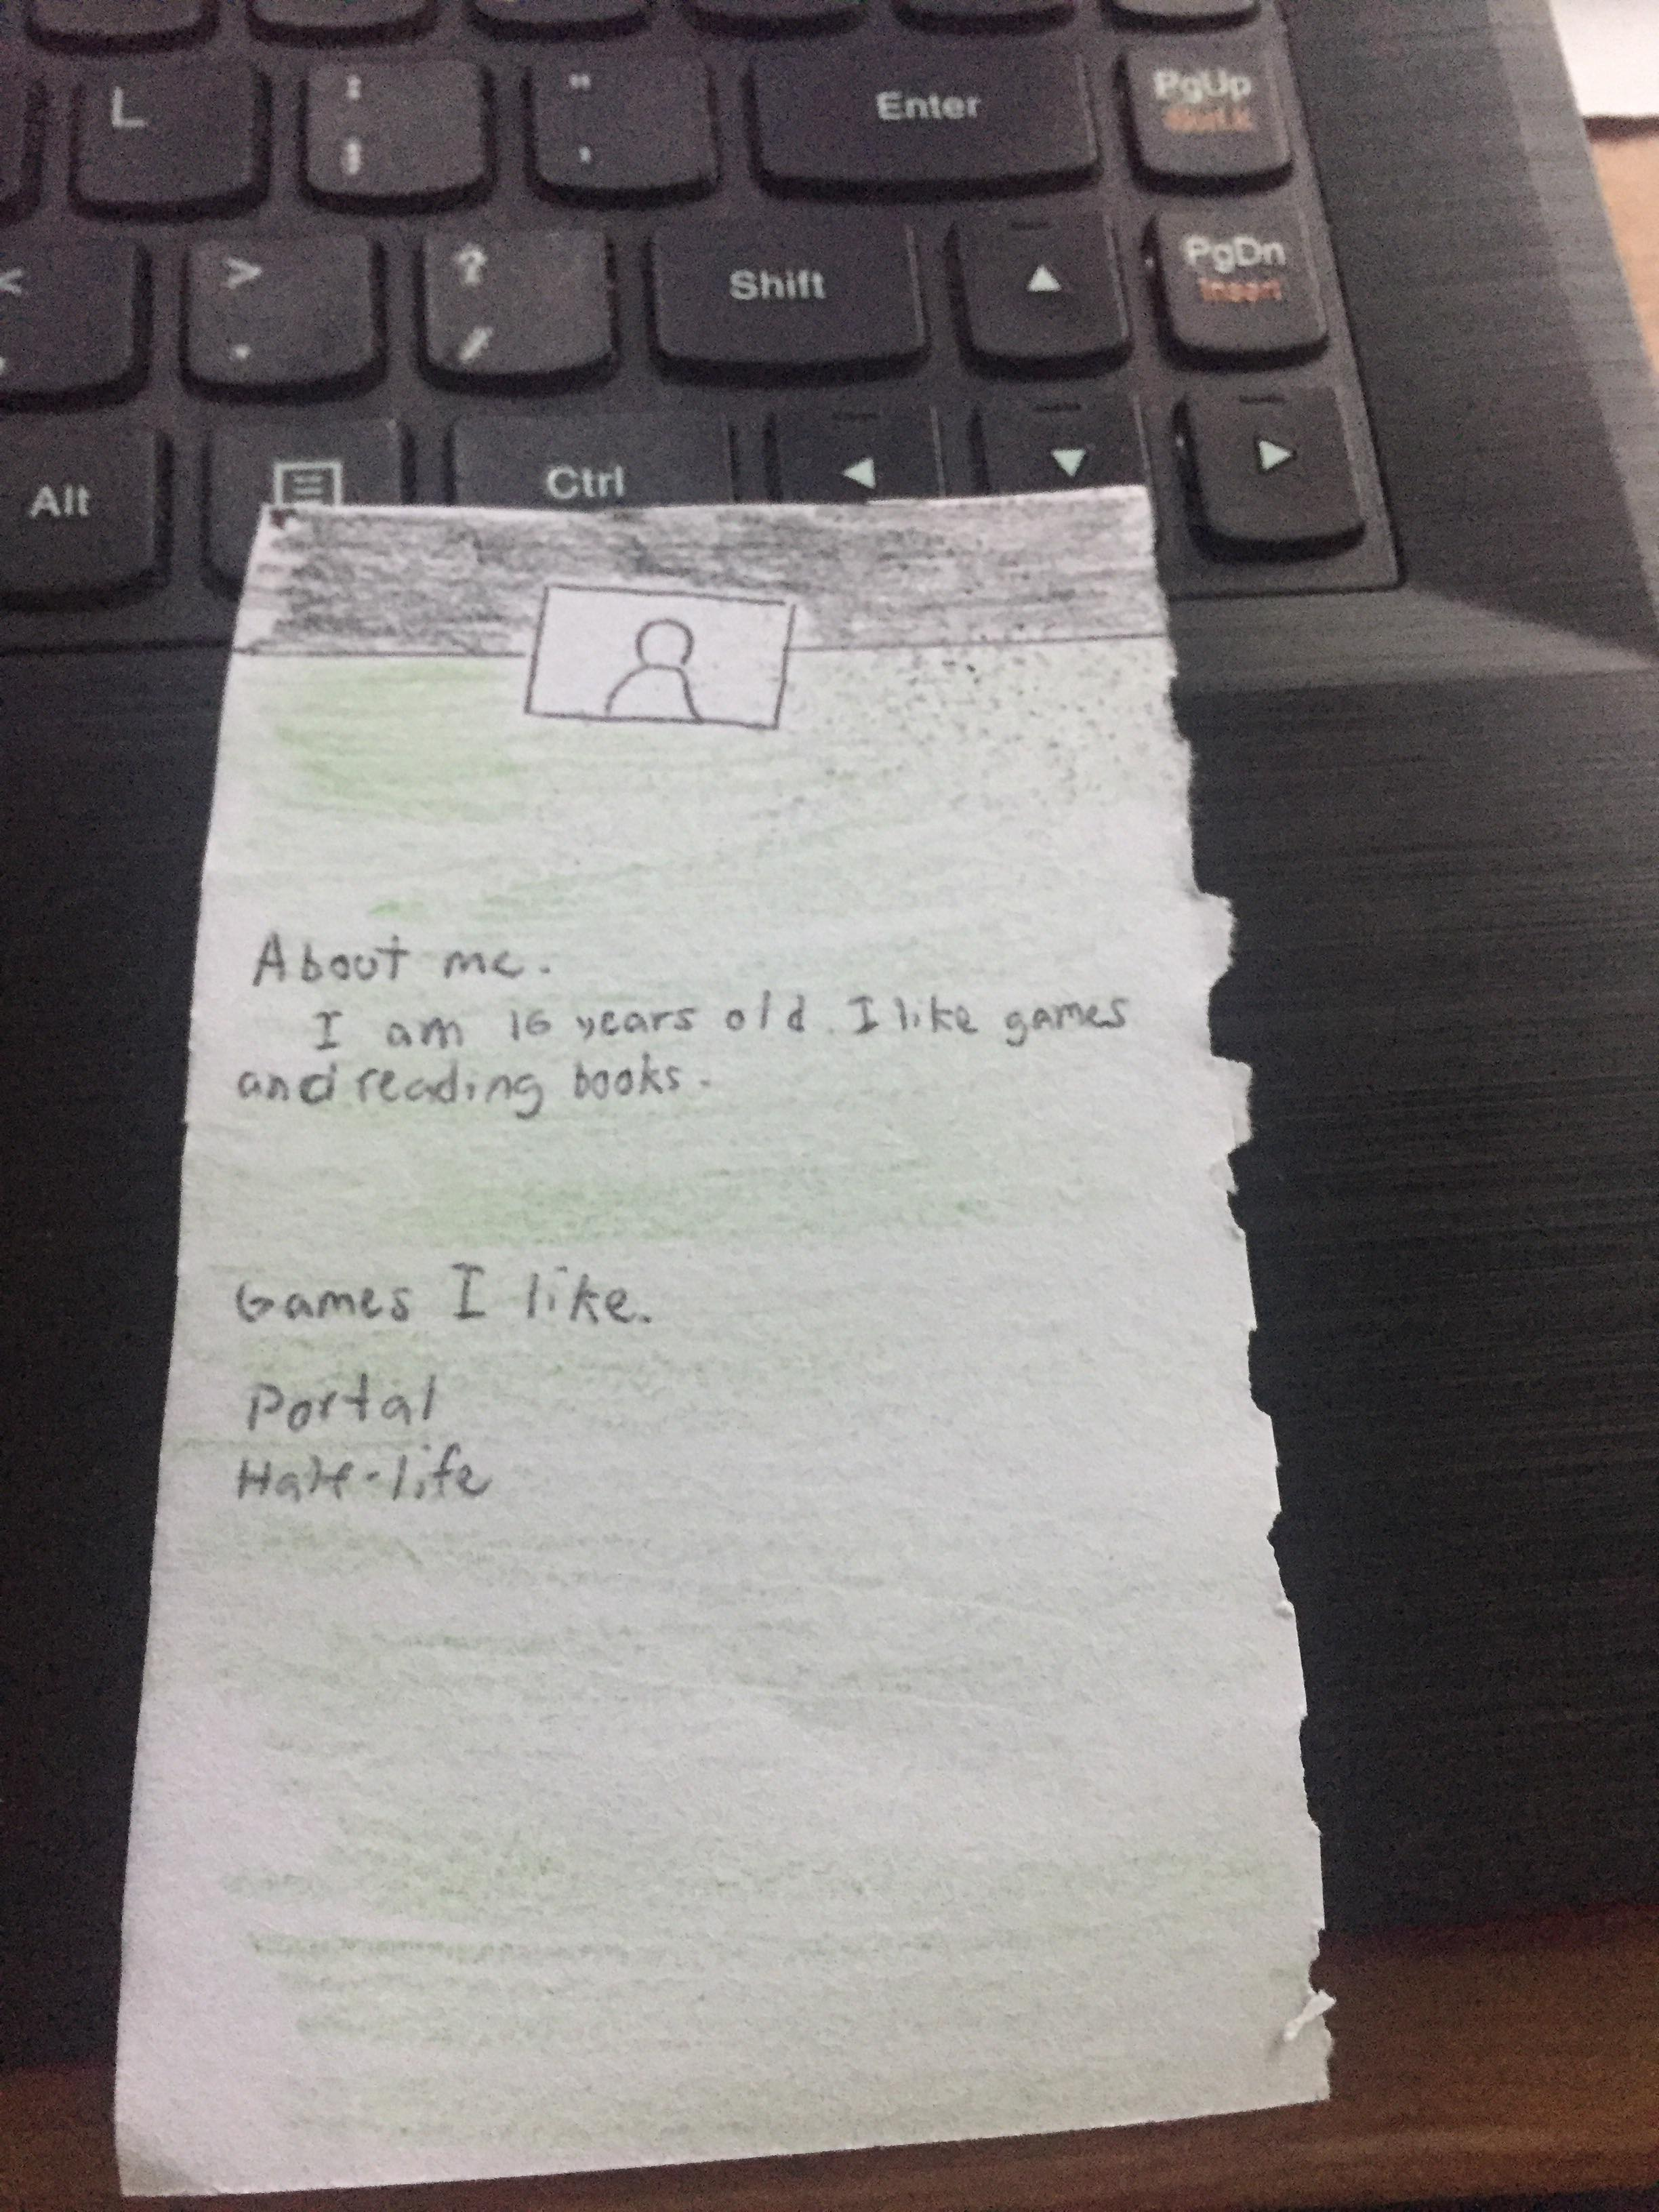 L
:
;
"
'
Enter
PgUp
<
,
>
.
?
/
Shift
PgDn
Insert
Alt
Ctrl
About me.
I am 16 years old. I like games
and reading books.
Games I like.
Portal
Half-life